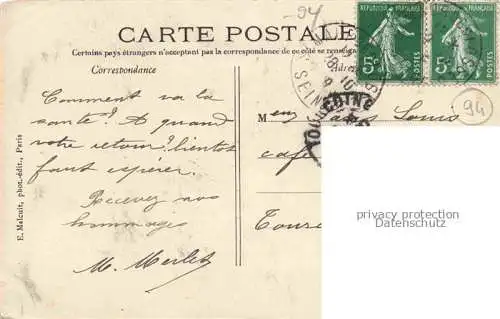 -94
CARTE POSTALE
Certains pays étrangers n'acceptent pas la correspondance de ce côté se renseign
Correspondance
Adre
REPUBLIQUE FRANÇAISE
REPUBLIQUE FRANÇAISE
5c POSTES
5c POSTES
SEINE
TOURCOING
94
M
Louis
Comment va la
santé? A quand
votre retour? bientôt
faut espérer.
Recevez nos
hommages
M. Merlet
café
Tourc
E. Malcuit, phot.-édit., Paris
privacy protection
Datenschutz